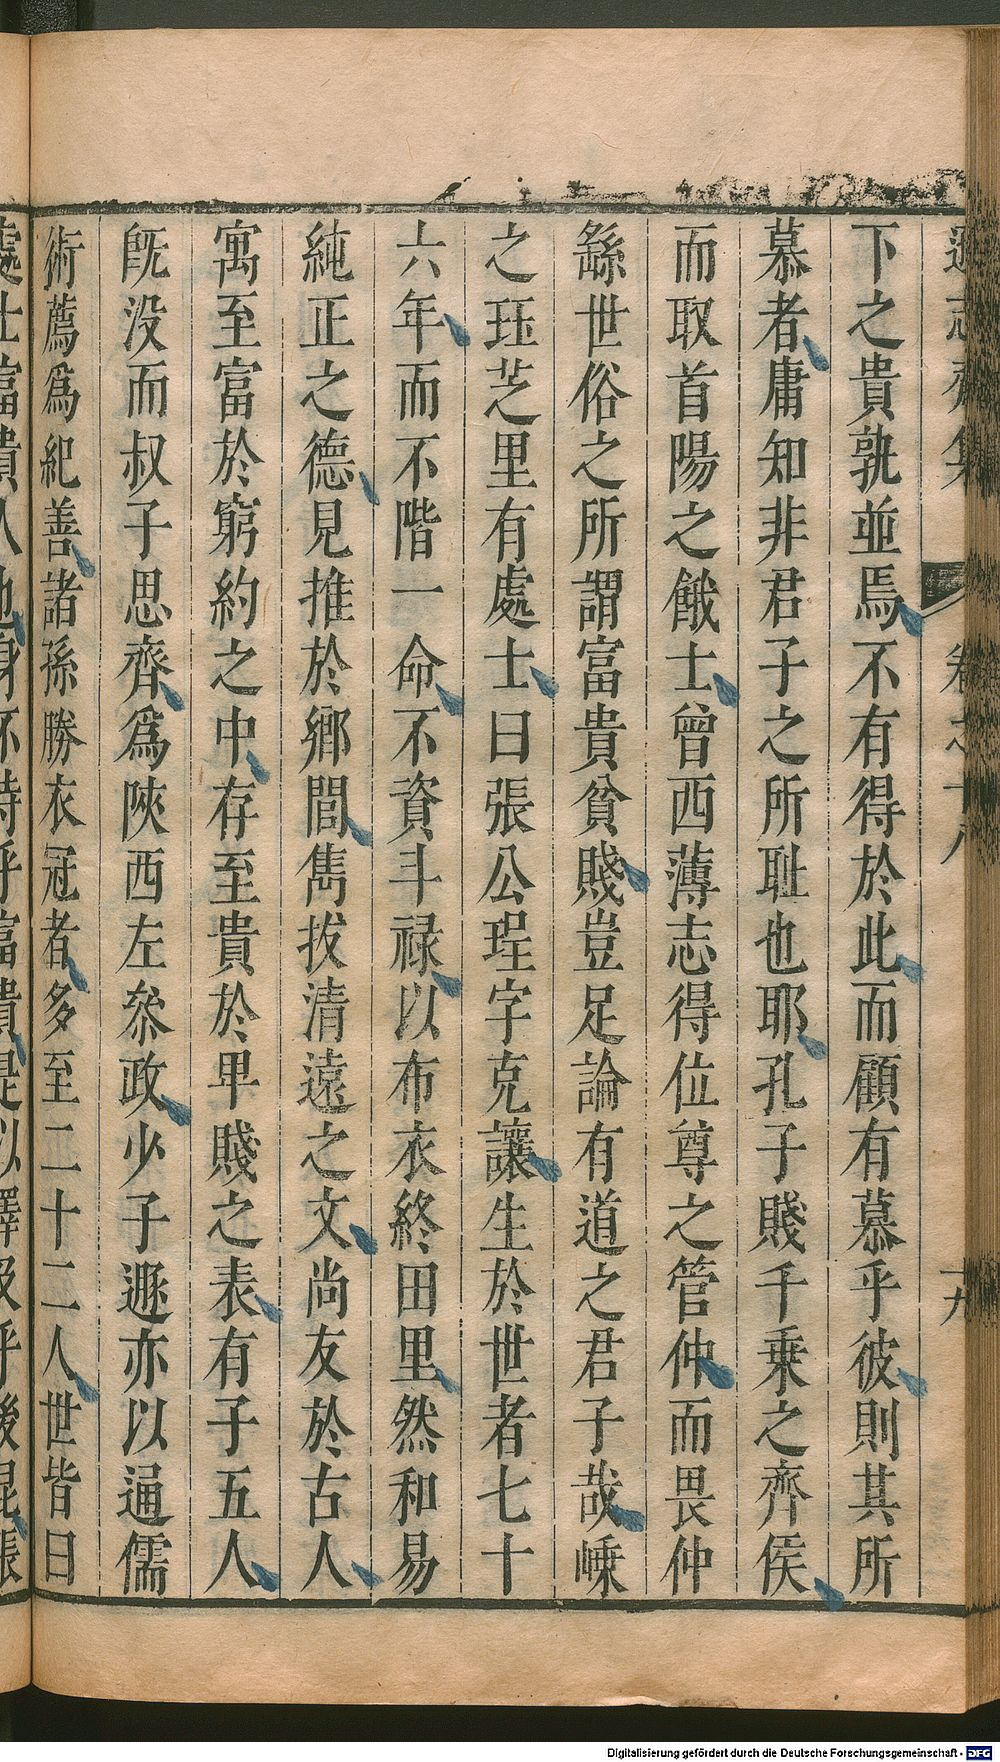 遜志齋集 卷之十八 十九
下之貴孰並焉不有得於此而顧有慕乎彼則其所
慕者庸知非君子之所耻也耶孔子賤千乗之齊侯
而取首陽之餓士曾西薄志得位尊之管仲而畏仲
繇世俗之所謂富貴貧賤豈足論有道之君子哉嵊
之珏芝里有處士曰張公珵字克讓生於世者七十
六年而不階一命不資斗禄以布衣終田里然和易
純正之德見推於鄉閭雋拔清遠之文尚友於古人
寓至富於窮約之中存至貴於卑賤之表有子五人
既没而叔子思齊爲陜西左叅政少子遯亦以通儒
術薦爲紀善諸孫勝衣冠者多至二十二人世皆曰
處士富貴人也身不待乎富貴是以
Digitalisierung gefördert durch die Deutsche Forschungsgemeinschaft - DFG